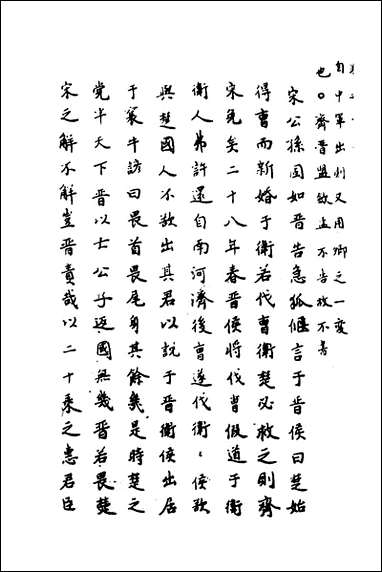 自中軍出則又用卿之一變
也○齊晉盟斂盂不告故不書
宋公孫固如晉告急狐偃言于晉侯曰楚始
得曹而新婚于衛若伐曹衛楚必救之則齊
宋免矣二十八年春晉侯將伐曹假道于衛
衛人弗許還自南河濟侵曹遂伐衛〻侯欲
與楚國人不欲出其君以說于晉衛侯出居
于襄牛諺曰畏首畏尾身其餘幾是時楚之
党半天下晉以亡公子返國無幾晉若畏楚
宋之解不解豈晉責哉以二十乘之惠君臣